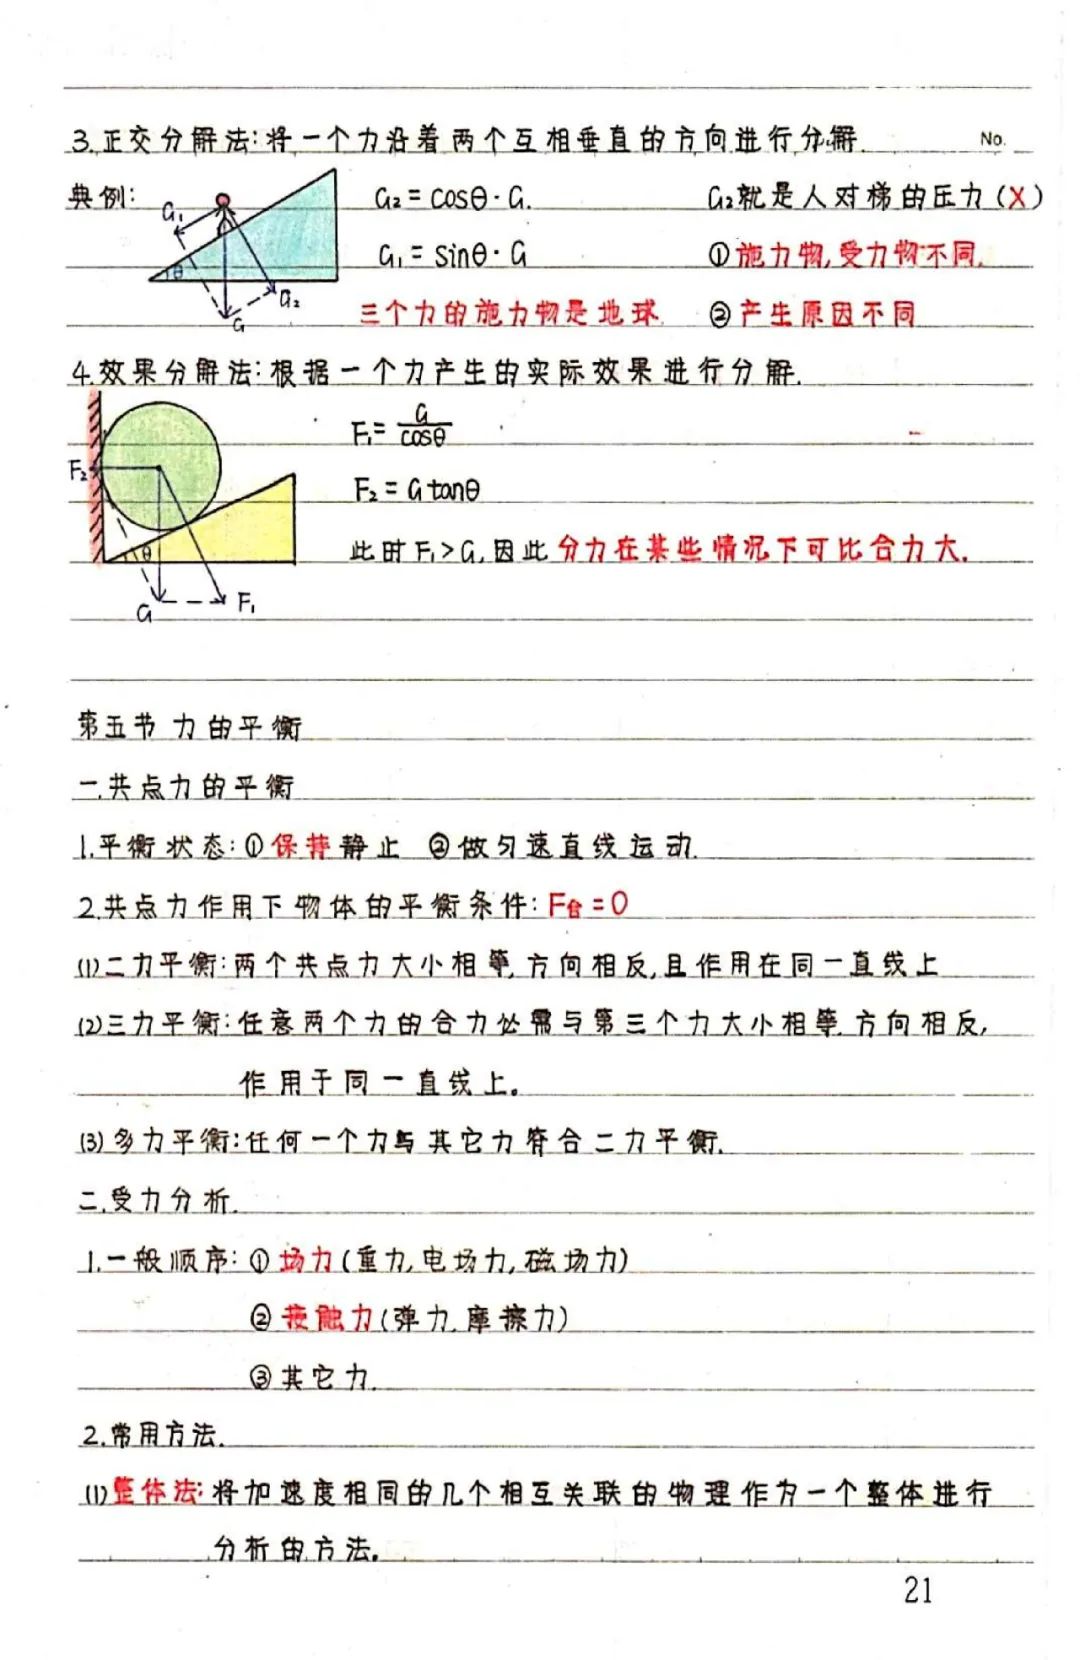 No.
3.正交分解法:将一个力沿着两个互相垂直的方向进行分解.
典例: G₁ θ G₂ G
G₂=cosθ·G. G₂就是人对梯的压力(X)
G₁=sinθ·G ①施力物,受力物不同.
三个力的施力物是地球. ②产生原因不同
4.效果分解法:根据一个力产生的实际效果进行分解.
F₂ θ G F₁
F₁=G/cosθ
F₂=Gtanθ
此时F₁>G,因此分力在某些情况下可比合力大.
第五节 力的平衡
一.共点力的平衡
1.平衡状态:①保持静止 ②做匀速直线运动.
2.共点力作用下物体的平衡条件:F合=0
(1)二力平衡:两个共点力大小相等,方向相反,且作用在同一直线上
(2)三力平衡:任意两个力的合力必需与第三个力大小相等.方向相反,
作用于同一直线上。
(3)多力平衡:任何一个力与其它力符合二力平衡.
二.受力分析.
1.一般顺序:①场力(重力,电场力,磁场力)
②接触力(弹力.摩擦力)
③其它力.
2.常用方法.
(1)整体法:将加速度相同的几个相互关联的物理作为一个整体进行
分析的方法。
21